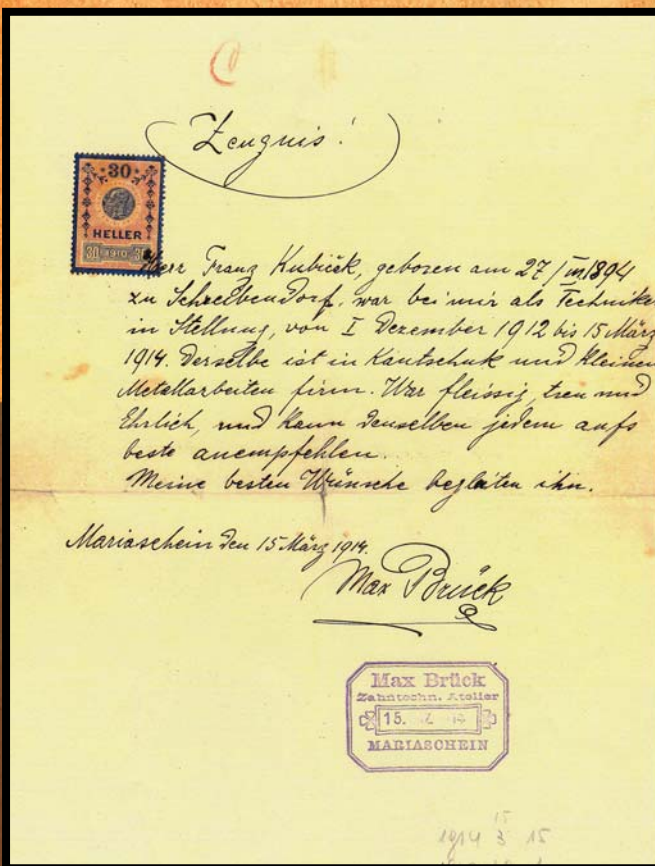 Zeugnis!
30
HELLER
30 1910 30
Herr Franz Kubiček, geboren am 27/III 1894
zu Schreibendorf, war bei mir als Technike
in Stellung, von I Dezember 1912 bis 15 März
1914. Derselbe ist in Kautschuk und kleinen
Metallarbeiten firm. War fleissig, treu und
Ehrlich, und kann denselben jedem aufs
beste anempfehlen.
Meine besten Wünsche begleiten ihn.
Mariaschein den 15 März 1914.
Max Brück
Max Brück
Zahntechn. Atelier
15.
MARIASCHEIN
15
1914 3 15